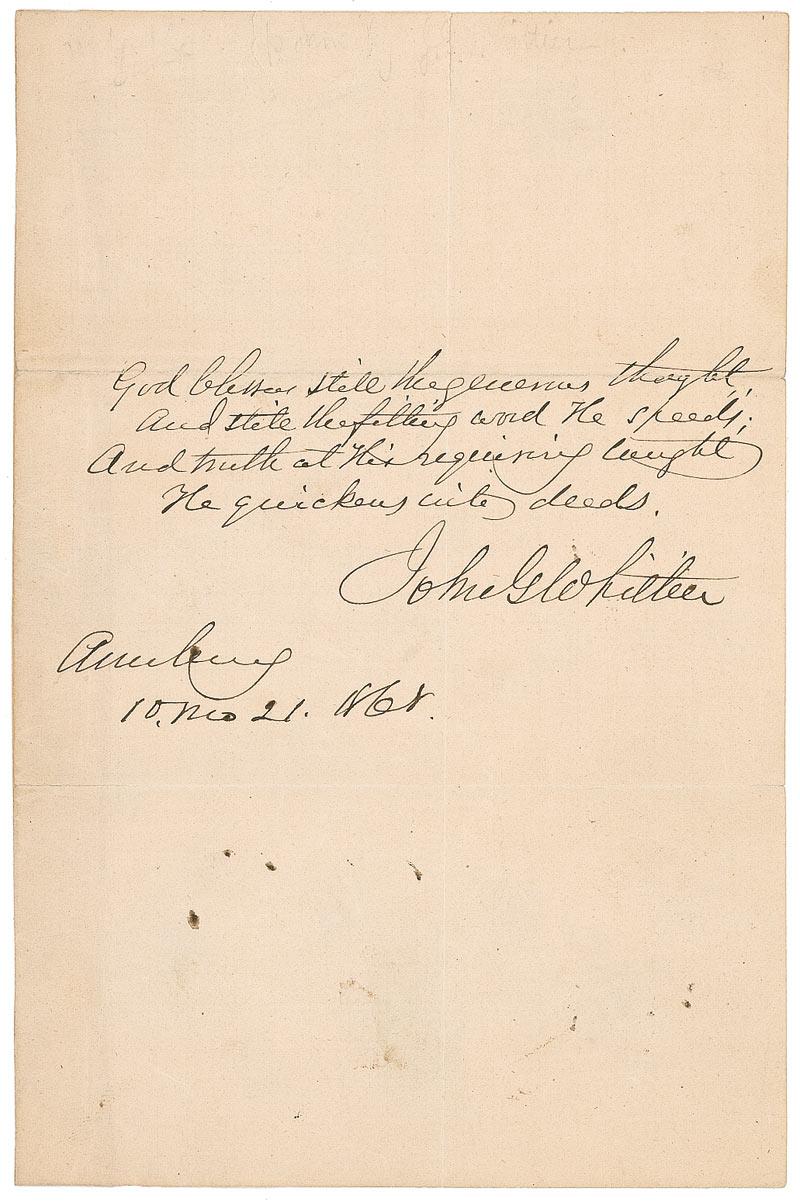 God blesses still the generous thought,
And still the fitting word He speeds,
And truth at His requiring taught
He quickens into deeds.
John G Whittier
Amesbury
10. mo 21. 1868.